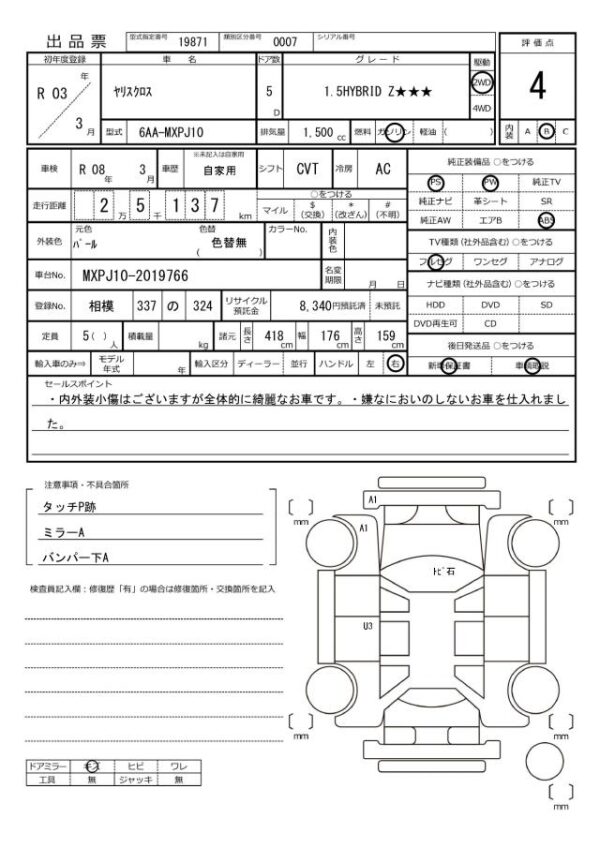 出品票 型式指定番号 19871 類別区分番号 0007 シリアル番号
評価点
初年度登録 車名 ドア数 グレード 駆動
R 03 年 3 月
ﾔﾘｽｸﾛｽ 5 D 1.5HYBRID Z★★★ 2WD 4WD
4
型式 6AA-MXPJ10 排気量 1,500 cc 燃料 ガソリン 軽油 ( )
内装 A B C
車検 R 08 年 3 月 車歴 ※未記入は自家用 自家用 シフト CVT 冷房 AC
純正装備品 ○をつける
PS PW 純正TV
走行距離 2 万 5 千 1 3 7 km
○をつける
マイル $(交換) *(改ざん) #(不明)
純正ナビ 革シート SR
純正AW エアB ABS
外装色 元色 ﾊﾟｰﾙ 色替 色替無 ( ) カラーNo. 内装色
TV種類(社外品含む)○をつける
フルセグ ワンセグ アナログ
車台No. MXPJ10-2019766 名変期限 月 日
ナビ種類(社外品含む)○をつける
HDD DVD SD
登録No. 相模 337 の 324 リサイクル預託金 8,340円預託済 未預託
DVD再生可 CD
定員 5( ) 人 積載量 kg 諸元 長さ 418 cm 幅 176 cm 高さ 159 cm
後日発送品 ○をつける
新車保証書 車輌取説
輸入車のみ⇒ モデル年式 年 輸入区分 ディーラー 並行 ハンドル 左 右
セールスポイント
・内外装小傷はございますが全体的に綺麗なお車です。・嫌なにおいのしないお車を仕入れまし
た。
注意事項・不具合箇所
タッチP跡
ミラーA
バンパー下A
検査員記入欄：修復歴「有」の場合は修復箇所・交換箇所を記入
A1
[ ] mm
[ ] mm
A1
ﾄﾋﾞ石
U3
[ ] mm
[ ] mm
ドアミラー キズ ヒビ ワレ
工具 無 ジャッキ 無
[ ] mm